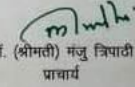 (श्रीमती) मंजु त्रिपाठी
प्राचार्य